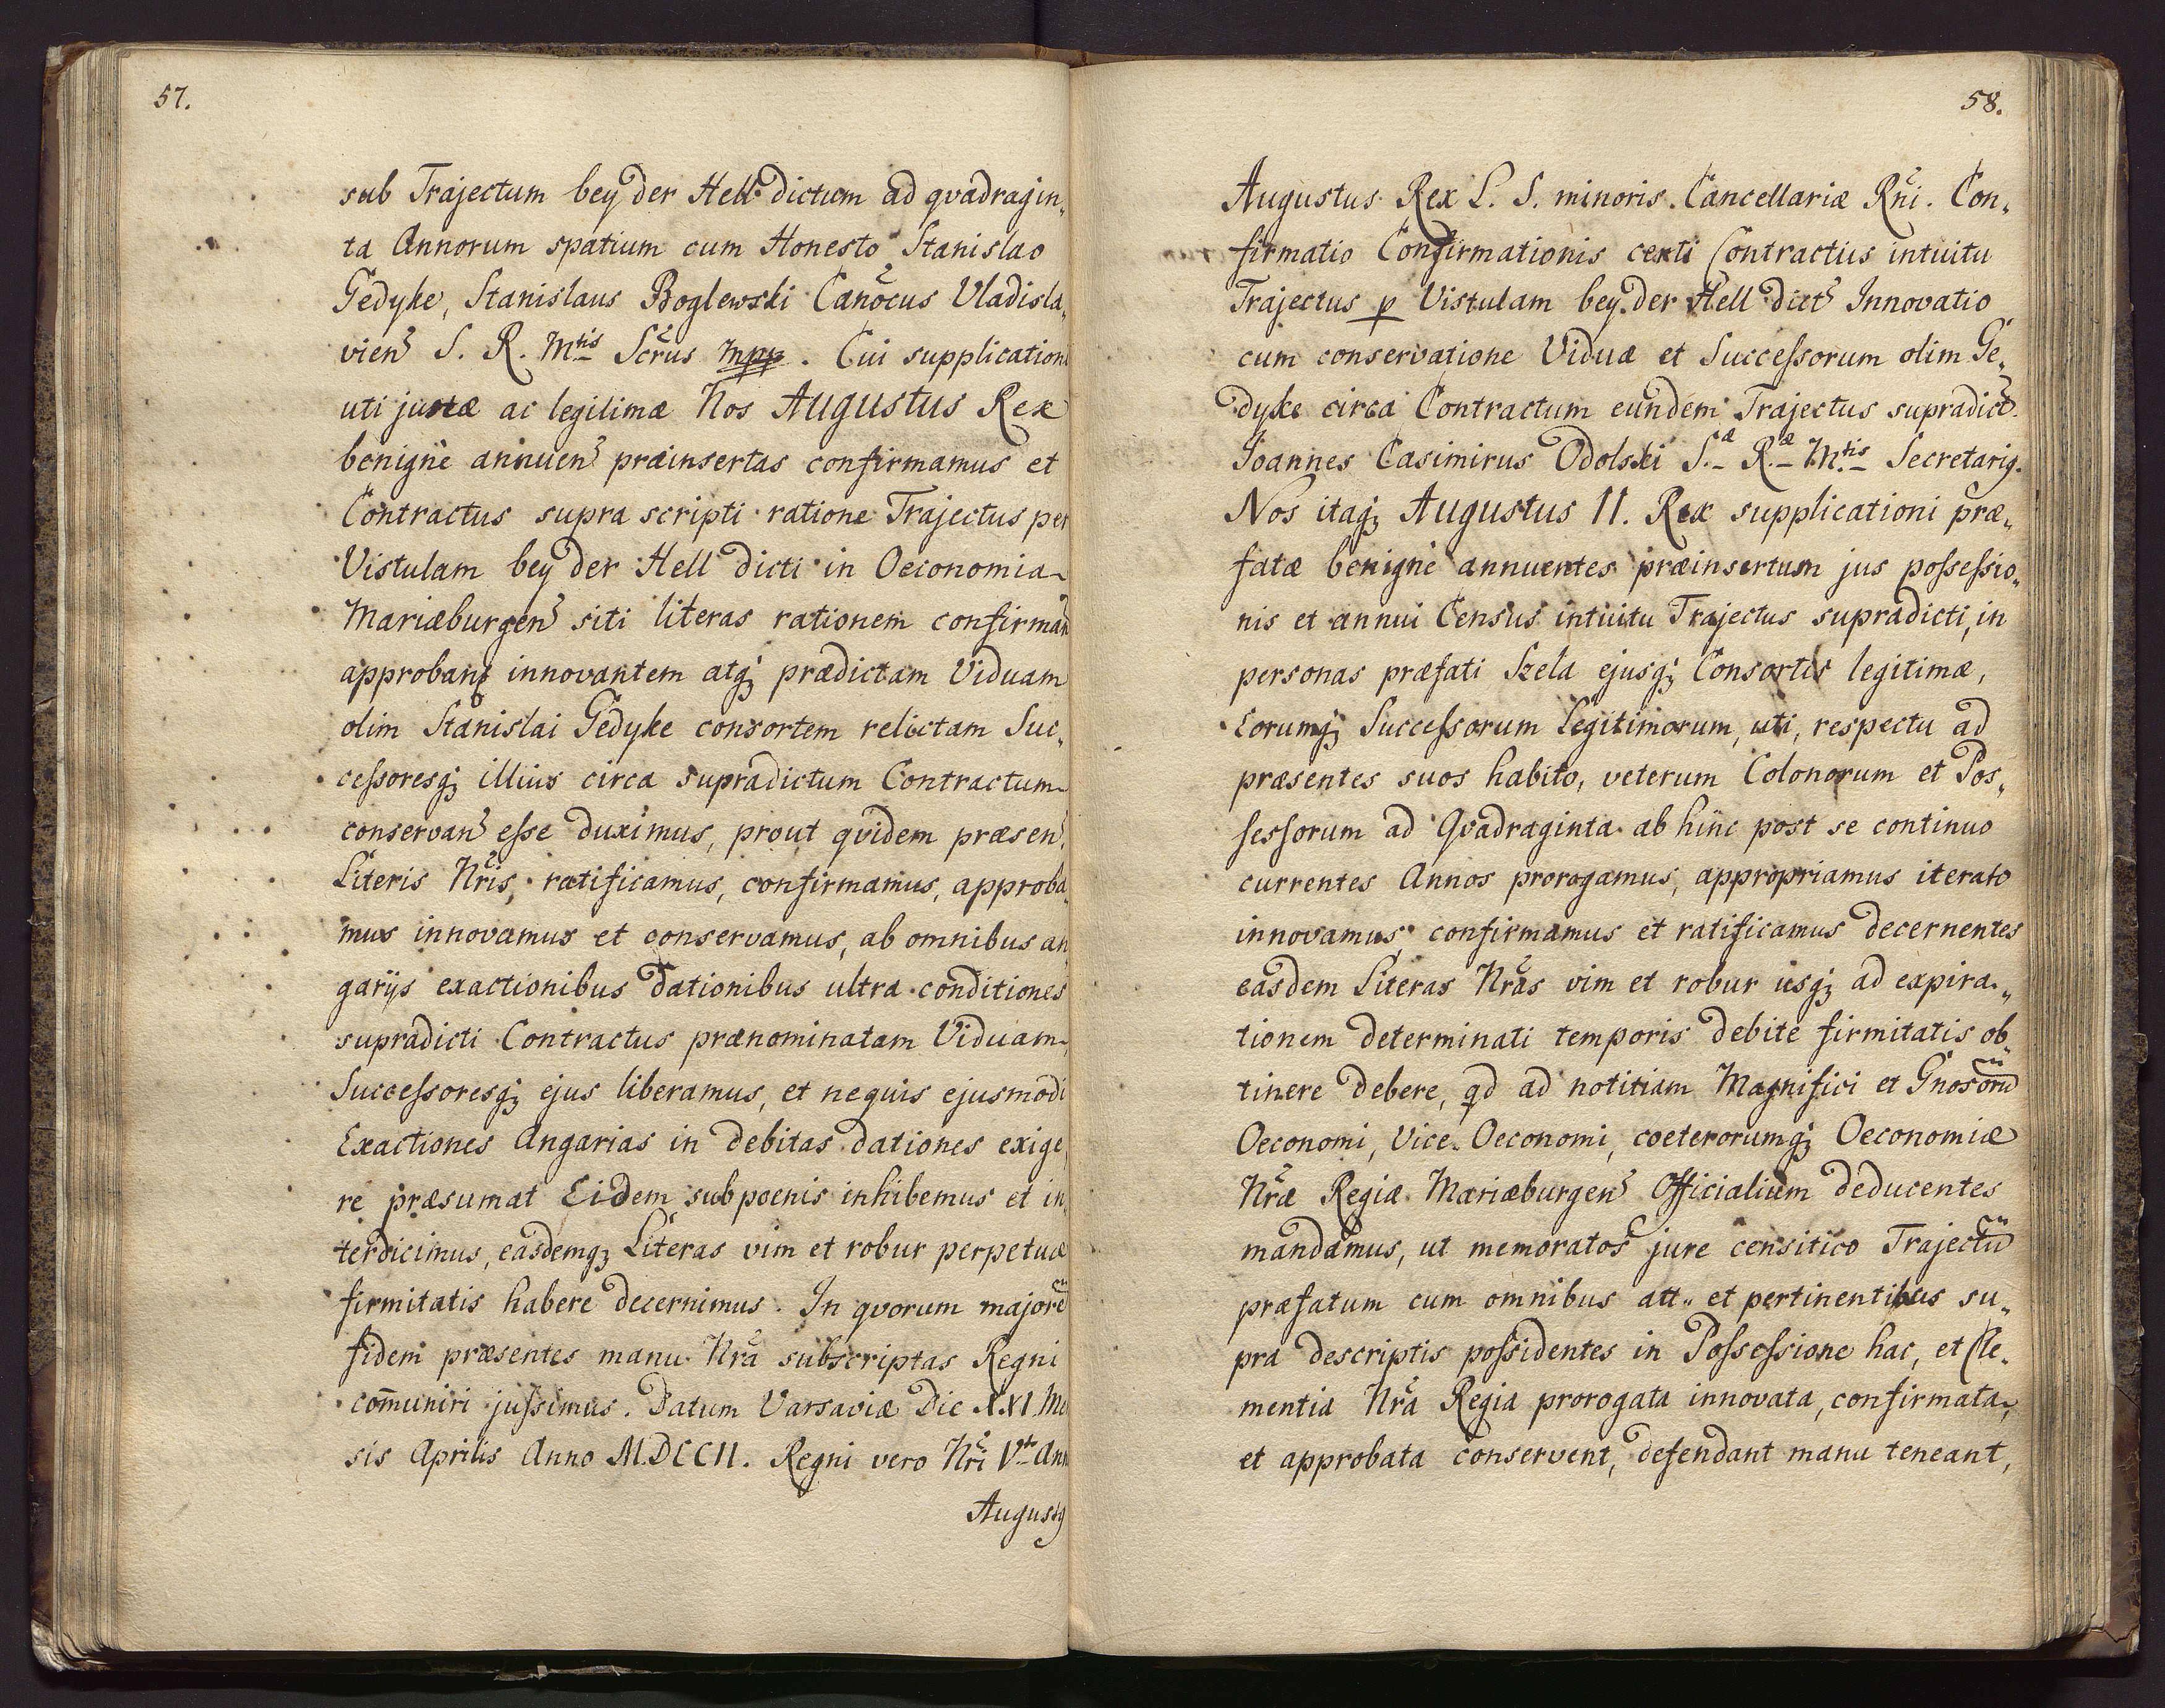 57.
sub Trajectum bey der Hell dictum ad qvadragin„
ta Annorum spatium cum Honesto Stanislao
Gedyke, Stanislaus Boglewski Canocus Vladisla„
vien S. R. Mtis Scrus mpp. Cui supplicatione
uti justæ ac legitimæ Nos Augustus Rex
benigne annuen præinsertas confirmamus et
Contractus supra scripti ratione Trajectus per
Vistulam bey der Hell dicti in Oeconomia
Mariæburgen siti literas rationem confirman
approban innovantem atqz prædictam Viduam
olim Stanislai Gedyke consortem relictam Suc„
cessoresqz illius circa supradictum Contractum
conservan esse duximus, prout qvidem præsen
Literis Nris, ratificamus, confirmamus, approba„
mus innovamus et conservamus, ab omnibus an„
garijs exactionibus dationibus ultra conditiones
supradicti Contractus prænominatam Viduam,
Successoresqz ejus liberamus, et nequis ejusmodi
Exactiones Angarias in debitas dationes exige„
re præsumat Eidem sub poenis inhibemus et in„
terdicimus, easdemqz Literas vim et robur perpetuæ
firmitatis habere decernimus. In qvorum majore
fidem præsentes manu Nra subscriptas Regni
com̄uniri jussimus. Datum Varsaviæ Die XXI. Me
sis Aprilis Anno MDCCII. Regni vero Nri Vto Ann
Augustq
58.
Augustus Rex L. S. minoris Cancellariæ Rni. Con„
firmatio Confirmationis certi Contractus intuitu
Trajectus p Vistulam bey der Hell dict Innovatio
cum conservatione Viduæ et Successorum olim Ge„
dyke circa Contractum eundem Trajectus supradict.
Joannes Casimirus Odolski S.æ R.æ M.tis Secretariq.
Nos itaqz Augustus II. Rex supplicationi præ„
fatæ benigne annuentes præinsertum jus possessio„
nis et annui Census intuitu Trajectus supradicti, in
personas præfati Szela ejusqz Consortis legitimæ,
Eorumqz Successorum Legitimorum, uti, respectu ad
præsentes suos habito, veterum Colonorum et Pos„
sessorum ad Qvadraginta ab hinc post se continuo
currentes Annos prorogamus, appropriamus iterato
innovamus, confirmamus et ratificamus decernentes
easdem Literas Nras vim et robur usqz ad expira„
tionem determinati temporis debite firmitatis ob„
tinere debere, qd ad notitiam Magnifici et Gnosorū
Oeconomi, Vice-Oeconomi, coeterorumqz Oeconomiæ
Nræ Regiæ Mariæburgen Officialium deducentes
mandamus, ut memoratos jure censitico Trajectū
præfatum cum omnibus att„ et pertinentibus su„
pra descriptis possidentes in Possessione hac, et Cle„
mentia Nra Regia prorogata innovata, confirmata,
et approbata conservent, defendant manu teneant,